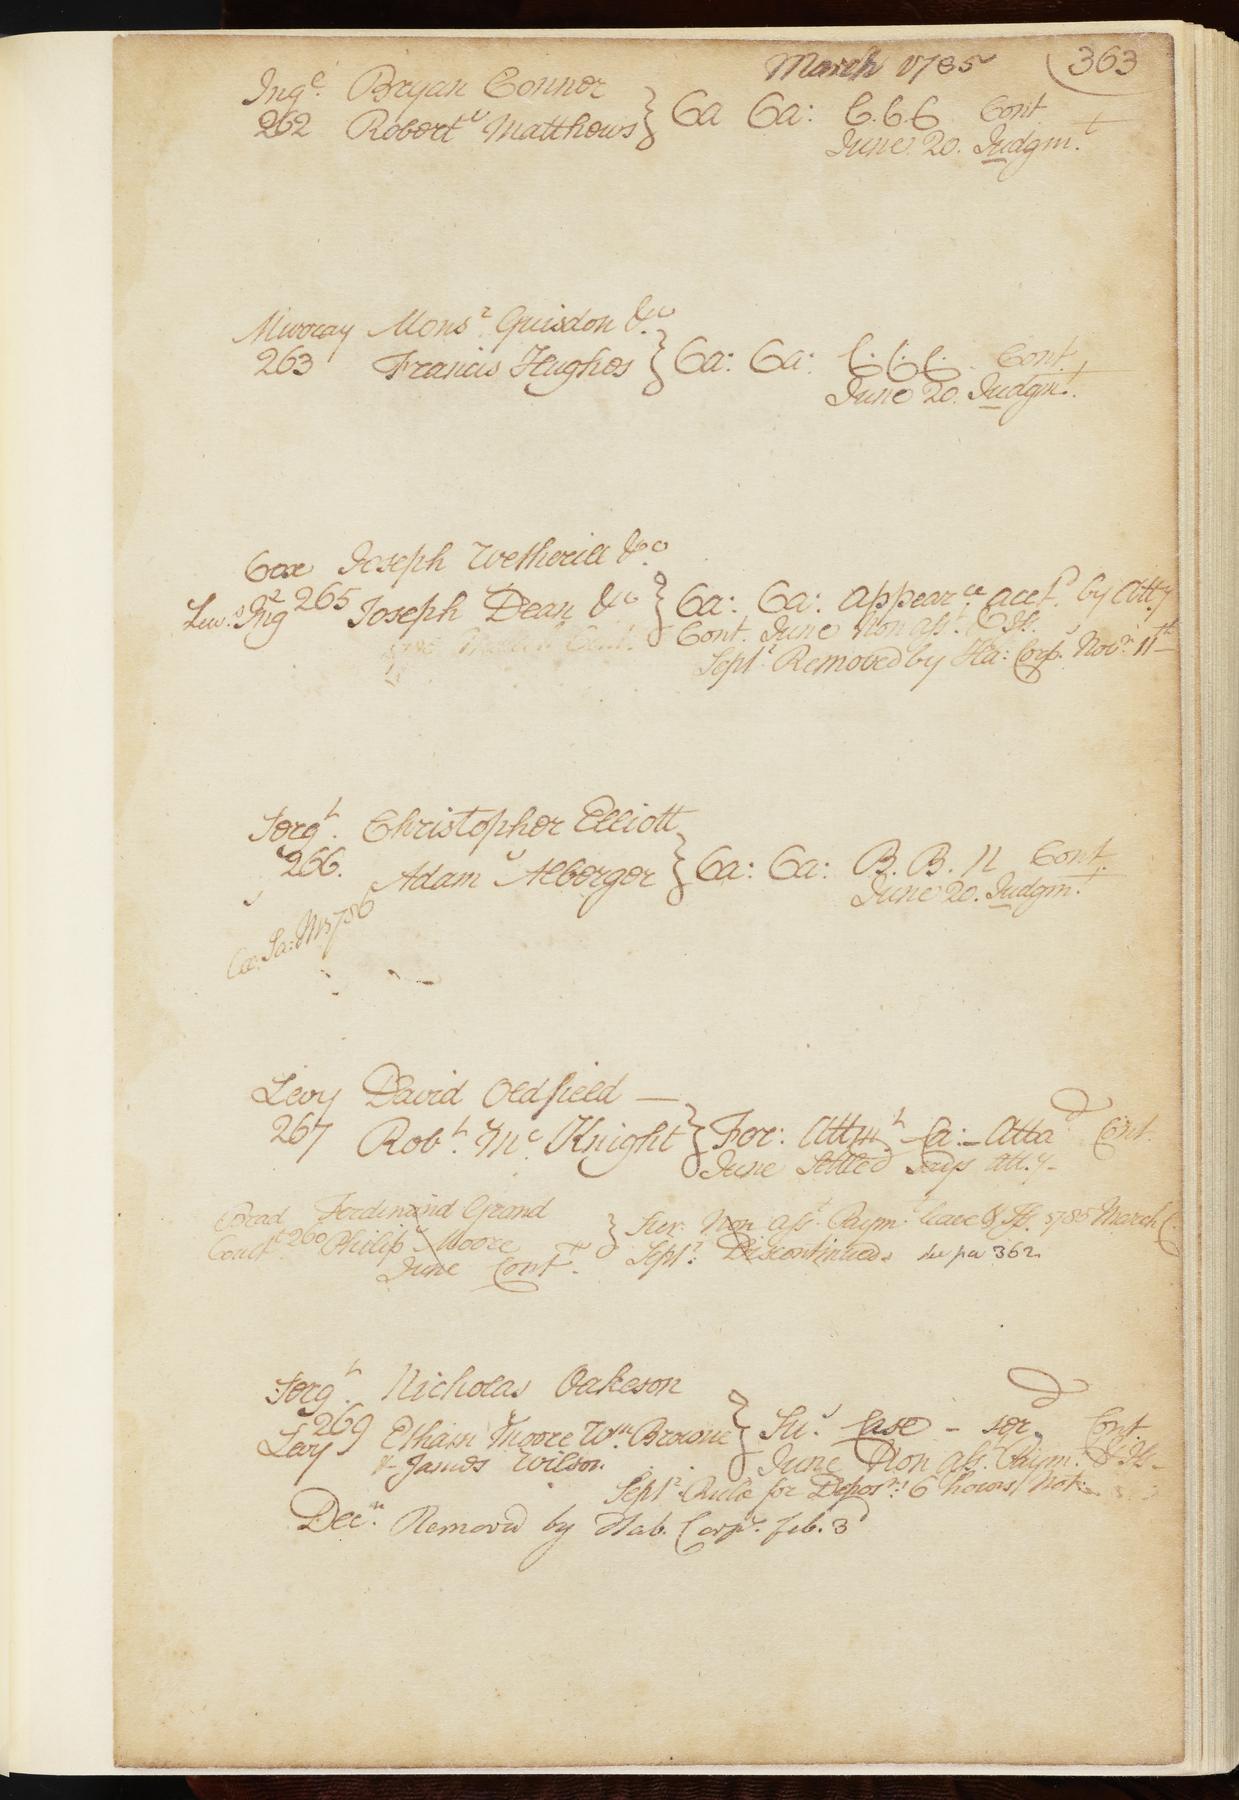 March 1785 363
Ing.e Bryan Connor
262 Robert Matthews } Ca Ca: C.C.C Cont.
June 20. Judgm.t
Murray Mons.r Guisdon &c
263 Francis Hughes } Ca: Ca: C.C.C. Cont.
June 20. Judgm.t
Cox Joseph Wetherill &Co
Lew.s Ing 265 Joseph Dean &Co } Ca: Ca: appear.ce accep.d by Att.y
Cont. June Non ass.t &Is.
Sept.r Removed by Ha: Corp. Nov.r 11th
Serg.t Christopher Elliott
266. Adam Alberger } Ca: Ca: B. B. N Cont.
June 20. Judgm.t
Ca. Sa: M 1786
Levy David Oldfield —
267 Rob.t Mc. Knight } For: Attm.t Ca: Atta.d Cont.
June Settled says Att.y
Brad Ferdinand Grand
260 Philip Moore } Sur: Non ass.t Paym.t leave & Is. 1785 March C.
June Cont. Sept.r Discontinued. see pa 362.
Serg.t Nicholas Oakeson
269 Levy Ethain Moore Wm. Browne } Su.s Case – ser.d Cont.
& James Wilson. June Non ass. Paym.t & Is.
Sept.r Rule for Depos.ns 6 hours Not.
Dec.r Removed by Hab. Corp.s feb. 3d